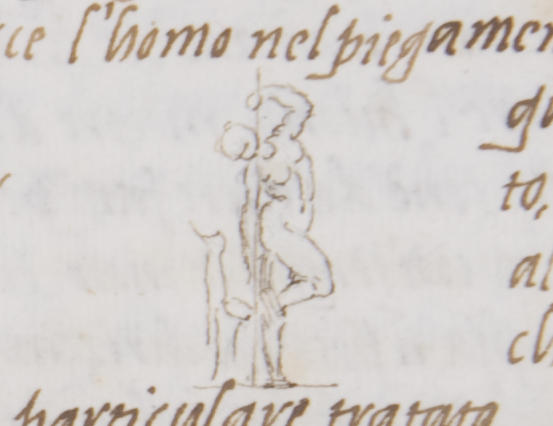 cce l'homo nel piegamen
qu
to,
al
ch
particulare tratata